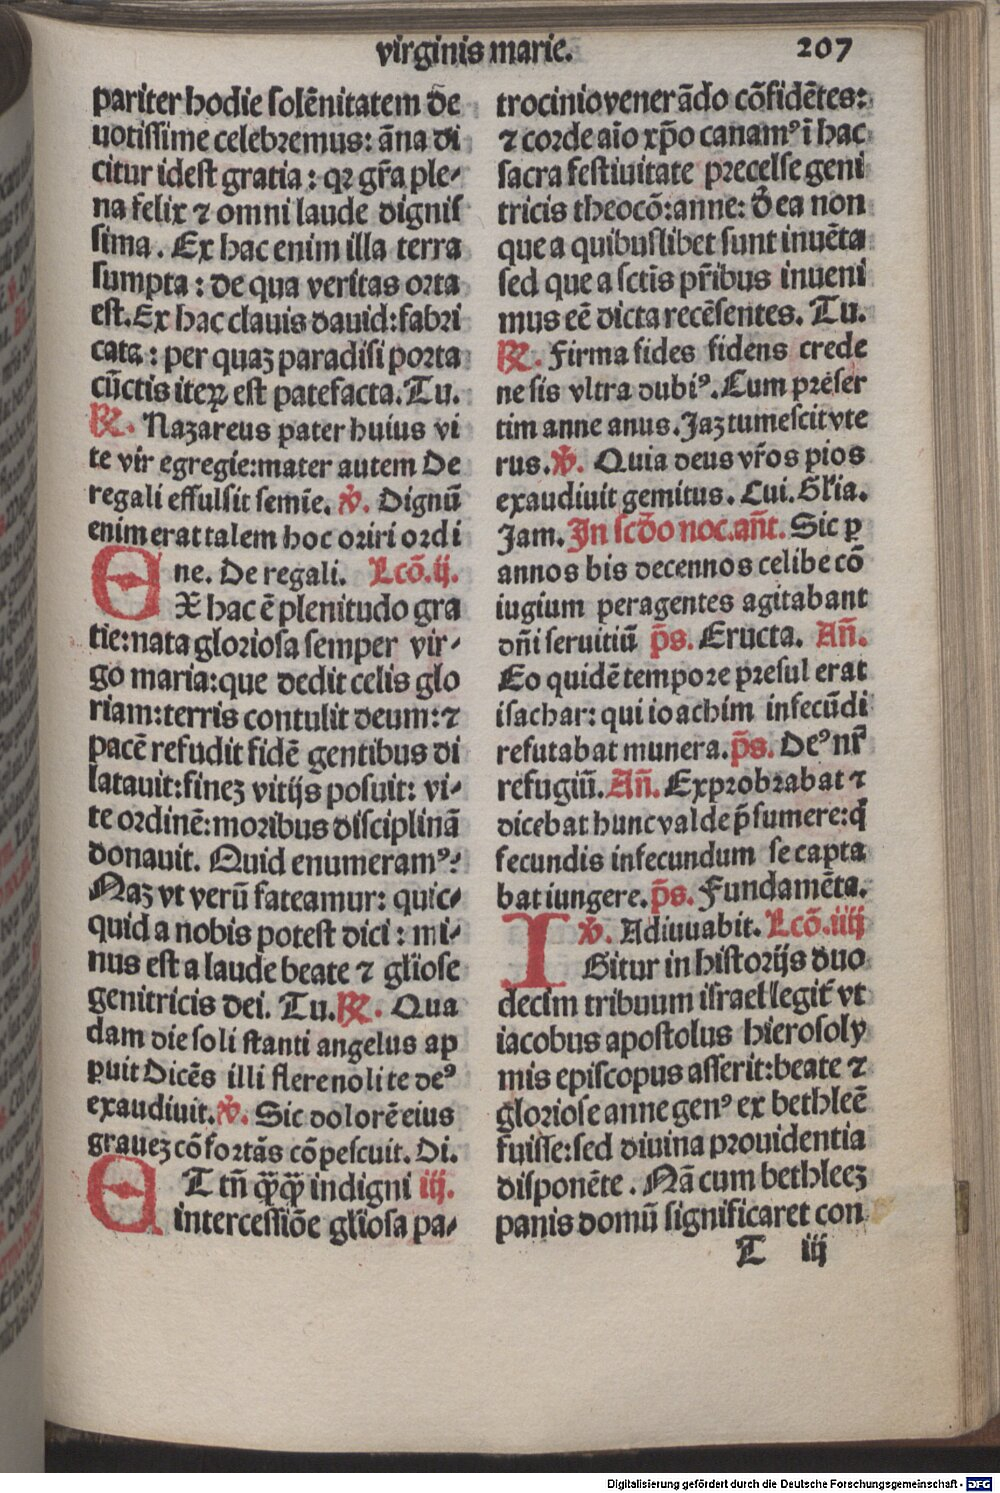 virginis marie.
207
pariter hodie solēnitatem de
uotissime celebremus: āna di
citur idest gratia : qꝛ gr̄a ple⸗
na felix ⁊ omni laude dignis
sima. Ex hac enim illa terra
sumpta : de qua veritas orta
est. Ex hac clauis dauid: fabri
cata : per quaꝫ paradisi porta
cūctis iteꝝ est patefacta. Tu.
℞. Nazareus pater huius vi
te vir egregie: mater autem De
regali effulsit semīe. ℣. Dignū
enim erat talem hoc oriri ordi
ne. De regali. Lcō. ij.
EX hac ē plenitudo gra
tie: nata gloriosa semper vir⸗
go maria: que dedit celis glo
riam: terris contulit deum: ⁊
pacē refudit fidē gentibus di
latauit: fineꝫ vitijs posuit: vi⸗
te ordinē: moribus disciplinā
donauit. Quid enumeramꝰ:
Naꝫ vt verū fateamur: quic⸗
quid a nobis potest dici : mi⸗
nus est a laude beate ⁊ gl̄iose
genitricis dei. Tu. ℞. Qua
dam die soli stanti angelus ap
paruit Dicēs illi flere nolite deꝰ
exaudiuit. ℣. Sic dolorē eius
graueꝫ cōfortās cōpescuit. Di.
ET tn̄ qꝙꝙ indigni iij.
intercessiōe gl̄iosa pa⸗
trocinio venerādo cōfidētes:
⁊ corde aīo xp̄o canamꝰ ī hac
sacra festiuitate precelse geni
tricis theocō: anne: d̄ ea non
que a quibuslibet sunt inuēta
sed que a sctīs pr̄ibus inueni
mus eē dicta recēsentes. Tu.
℞. Firma fides fidens crede
ne sis vltra dubiꝰ. Cum prēser
tim anne anus. Jaꝫ tumescit vte
rus. ℣. Quia deus vr̄os pios
exaudiuit gemitus. Cui. Gl̄ia.
Jam. In scd̄o noc. añt. Sic ꝑ
annos bis decennos celibe cō
iugium peragentes agitabant
dñi seruitiū p̄s. Eructa. Añ.
Eo quidē tempore presul erat
isachar: qui ioachim infecūdi
refutabat munera. p̄s. Deꝰ nr̄
refugiū. Añ. Exprobrabat ⁊
dicebat hunc valde p̄sumere: q̄
fecundis infecundum se capta
bat iungere. p̄s. Fundamēta.
℣. Adiuuabit. Lcō. iiij
IGitur in historijs duo
decim tribuum israel legit̄ vt
iacobus apostolus hierosoly
mis episcopus asserit: beate ⁊
gloriose anne genꝰ ex bethleē
fuisse: sed diuina prouidentia
disponēte. Nā cum bethleeꝫ
panis domū significaret con
T iij
Digitalisierung gefördert durch die Deutsche Forschungsgemeinschaft - DFG